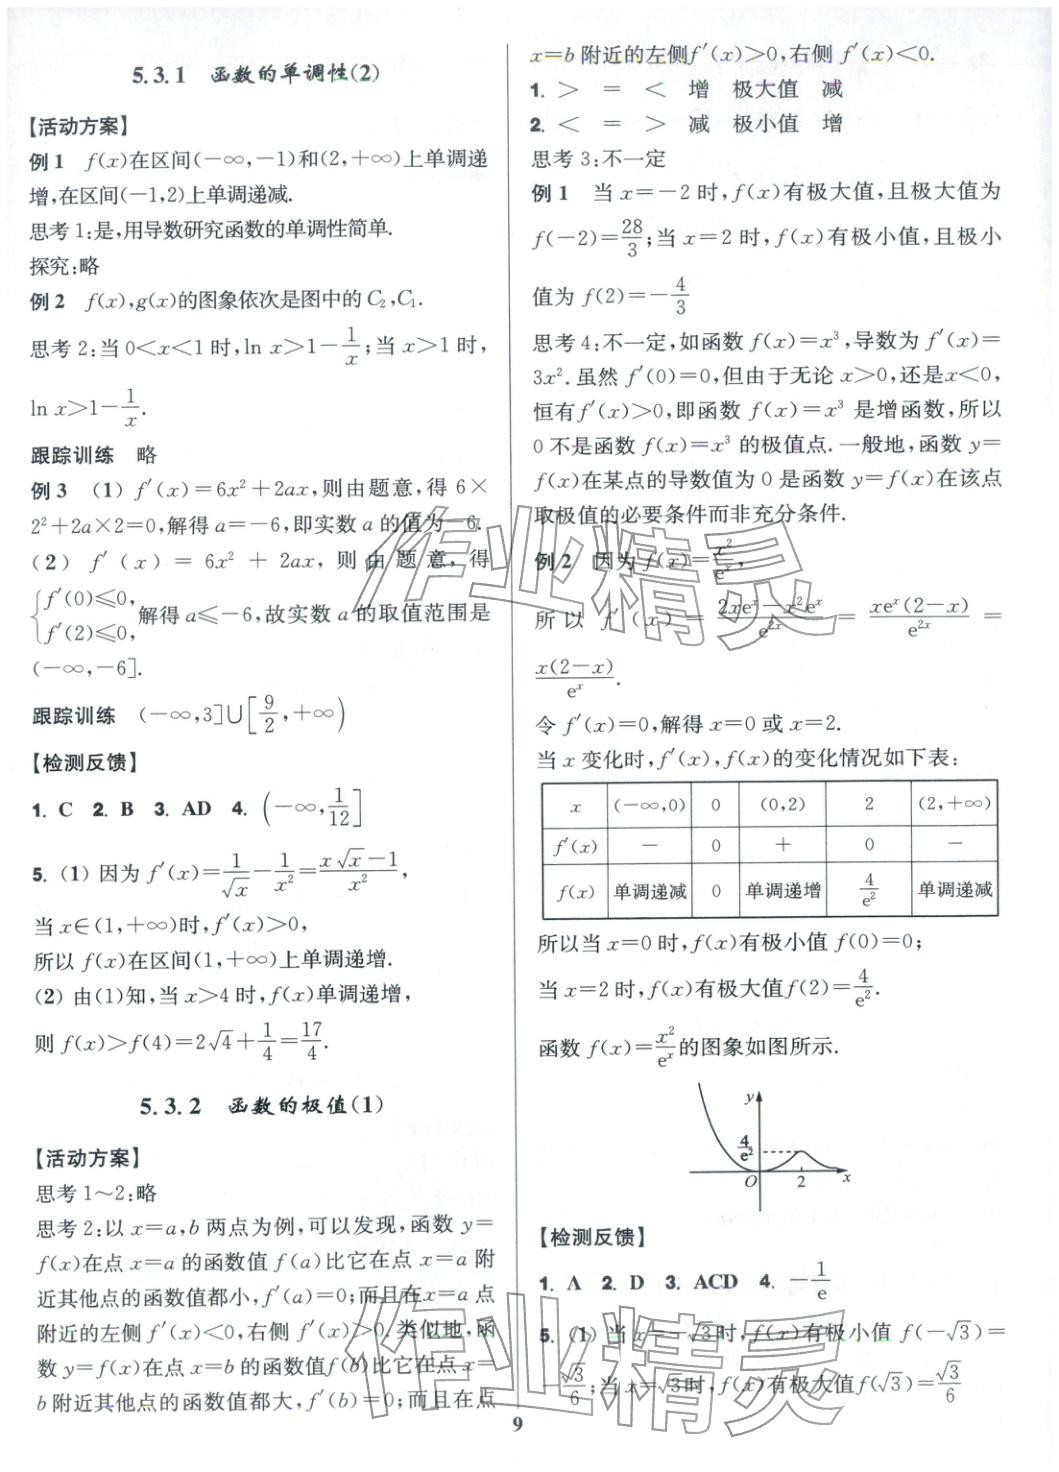 5.3.1 函数的单调性(2)
【活动方案】
例1 f(x)在区间(-∞,-1)和(2,+∞)上单调递
增,在区间(-1,2)上单调递减.
思考1:是,用导数研究函数的单调性简单.
探究:略
例2 f(x),g(x)的图象依次是图中的C₂,C₁.
思考2:当0<x<1时,ln x>1-1/x;当x>1时,
ln x>1-1/x.
跟踪训练 略
例3 (1) f′(x)=6x²+2ax,则由题意,得6×
2²+2a×2=0,解得a=-6,即实数a的值为-6.
(2) f′(x)=6x²+2ax,则由题意,得
{f′(0)≤0,
f′(2)≤0, 解得a≤-6,故实数a的取值范围是
(-∞,-6].
跟踪训练 (-∞,3]∪[9/2,+∞)
【检测反馈】
1. C 2. B 3. AD 4. (-∞,1/12]
5. (1) 因为f′(x)=1/√x-1/x²=(x√x-1)/x²,
当x∈(1,+∞)时,f′(x)>0,
所以f(x)在区间(1,+∞)上单调递增.
(2) 由(1)知,当x>4时,f(x)单调递增,
则f(x)>f(4)=2√4+1/4=17/4.
5.3.2 函数的极值(1)
【活动方案】
思考1~2:略
思考2:以x=a,b两点为例,可以发现,函数y=
f(x)在点x=a的函数值f(a)比它在点x=a附
近其他点的函数值都小,f′(a)=0;而且在x=a点
附近的左侧f′(x)<0,右侧f′(x)>0.类似地,函
数y=f(x)在点x=b的函数值f(b)比它在点x=
b附近其他点的函数值都大,f′(b)=0;而且在点
x=b附近的左侧f′(x)>0,右侧f′(x)<0.
1. > = < 增 极大值 减
2. < = > 减 极小值 增
思考3:不一定
例1 当x=-2时,f(x)有极大值,且极大值为
f(-2)=28/3;当x=2时,f(x)有极小值,且极小
值为f(2)=-4/3
思考4:不一定,如函数f(x)=x³,导数为f′(x)=
3x².虽然f′(0)=0,但由于无论x>0,还是x<0,
恒有f′(x)>0,即函数f(x)=x³是增函数,所以
0不是函数f(x)=x³的极值点.一般地,函数y=
f(x)在某点的导数值为0是函数y=f(x)在该点
取极值的必要条件而非充分条件.
例2 因为f(x)=x²/eˣ,
所以f′(x)=(2xeˣ-x²eˣ)/e²ˣ=xeˣ(2-x)/e²ˣ=
x(2-x)/eˣ.
令f′(x)=0,解得x=0或x=2.
当x变化时,f′(x),f(x)的变化情况如下表:
x (-∞,0) 0 (0,2) 2 (2,+∞)
f′(x) - 0 + 0 -
f(x) 单调递减 0 单调递增 4/e² 单调递减
所以当x=0时,f(x)有极小值f(0)=0;
当x=2时,f(x)有极大值f(2)=4/e².
函数f(x)=x²/eˣ的图象如图所示.
y
4/e²
O 2 x
【检测反馈】
1. A 2. D 3. ACD 4. -1/e
5. (1) 当x=-√3时,f(x)有极小值f(-√3)=
-√3/6;当x=√3时,f(x)有极大值f(√3)=√3/6
9
作业精灵
作业精灵